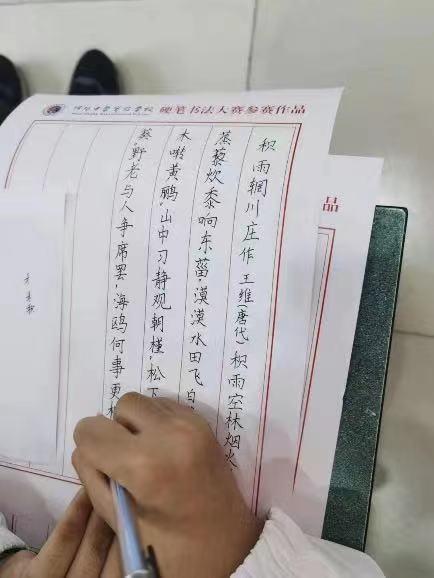 硬笔书法大赛参赛作品
积雨辋川庄作 王维(唐代) 积雨空林烟火
蒸藜炊黍响东菑,漠漠水田飞白
木啭黄鹂,山中习静观朝槿,松下
葵,野老与人争席罢,海鸥何事更
品